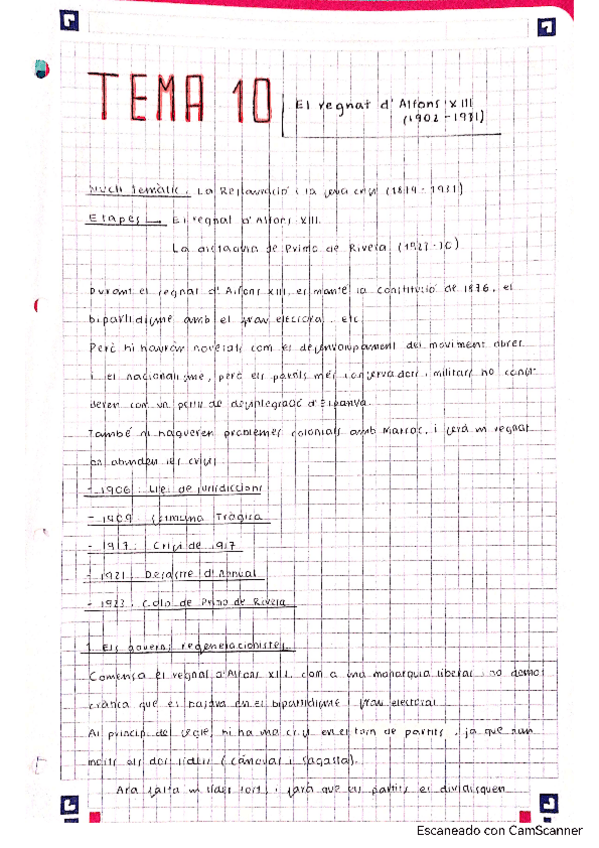 TEMA 10
El regnat d'Alfons XIII
(1902-1931)
Nucli temàtic. La Restauració i la seva crisi (1874-1931)
Etapes → El regnat d'Alfons XIII.
La dictadura de Primo de Rivera (1923-30)
Durant el regnat d'Alfons XIII, es manté la Constitució de 1876, el
bipartidisme amb el frau electoral, etc
Però hi hauran novetats com es desenvolupament del moviment obrer
i el nacionalisme, però els partits més conservadors i militars ho consi-
deren com un perill de desintegració d'Espanya.
També hi hagueren problemes colonials amb Marroc, i serà un regnat
on abunden les crisis
- 1906: Llei de jurisdiccions
- 1909: Setmana Tràgica
- 1917: Crisi de 1917
- 1921: Desastre d'Annual
- 1923: Colp de Primo de Rivera
1. Els governs regeneracionistes.
Comença el regnat d'Alfons XIII com a una monarquia liberal, no demo-
cràtica que es basava en el bipartidisme i frau electoral
Al principi del segle, hi ha una crisi en el torn de partits, ja que han
morts els dos líders (Cánovas i Sagasta).
Ara falta un líder fort, i farà que els partits es dividisquen
Escaneado con CamScanner